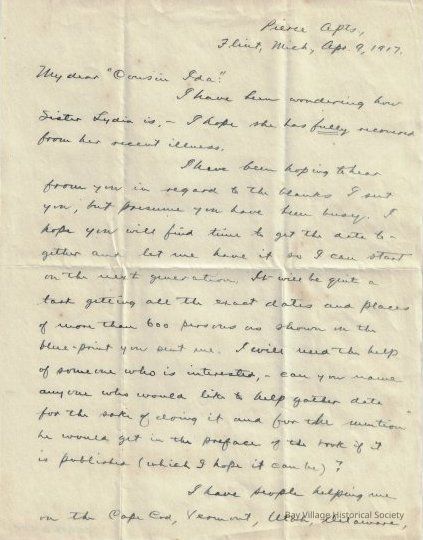 Pierce Apts,
Flint, Mich, Apr 9, 1917.
My dear "Cousin Ida":
I have been wondering how
Sister Lydia is, - I hope she has fully recovered
from her recent illness.
I have been hoping to hear
from you in regard to the blanks I sent
you, but presume you have been busy. I
hope you will find time to get the data to-
gether and let me have it so I can start
on the next generation. It will be quite a
task getting all the exact dates and places
of more than 600 persons as shown in the
blue-print you sent me. I will need the help
of someone who is interested, - can you name
anyone who would like to help gather data
for the sake of doing it and for the "mention"
he would get in the preface of the book if it
is published (which I hope it can be)?
I have people helping me
on the Cape Cod, Vermont, Utah, Delaware,
Bay Village Historical Society